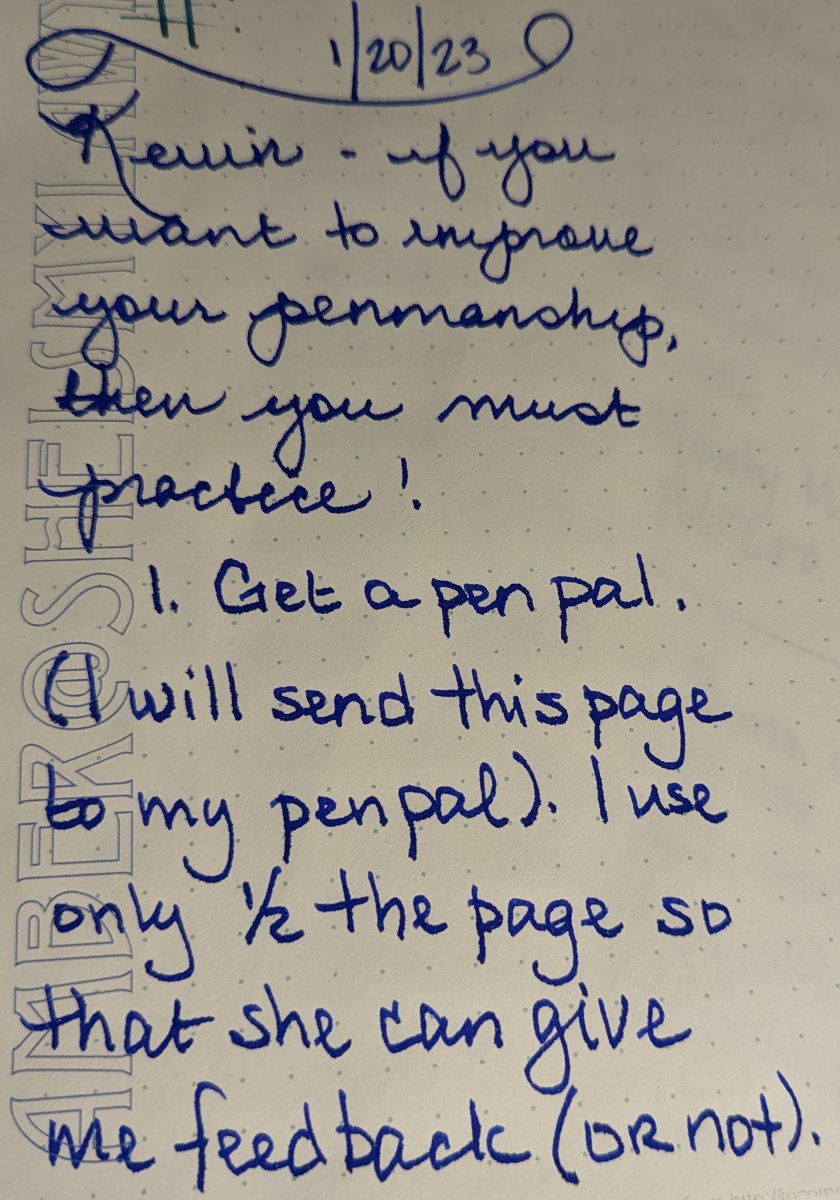 1/20/23
Kevin - if you
want to improve
your penmanship,
then you must
practice!
1. Get a pen pal.
(I will send this page
to my pen pal). I use
only 1/2 the page so
that she can give
me feedback (OR not).
AMBER@SHELBSMYL